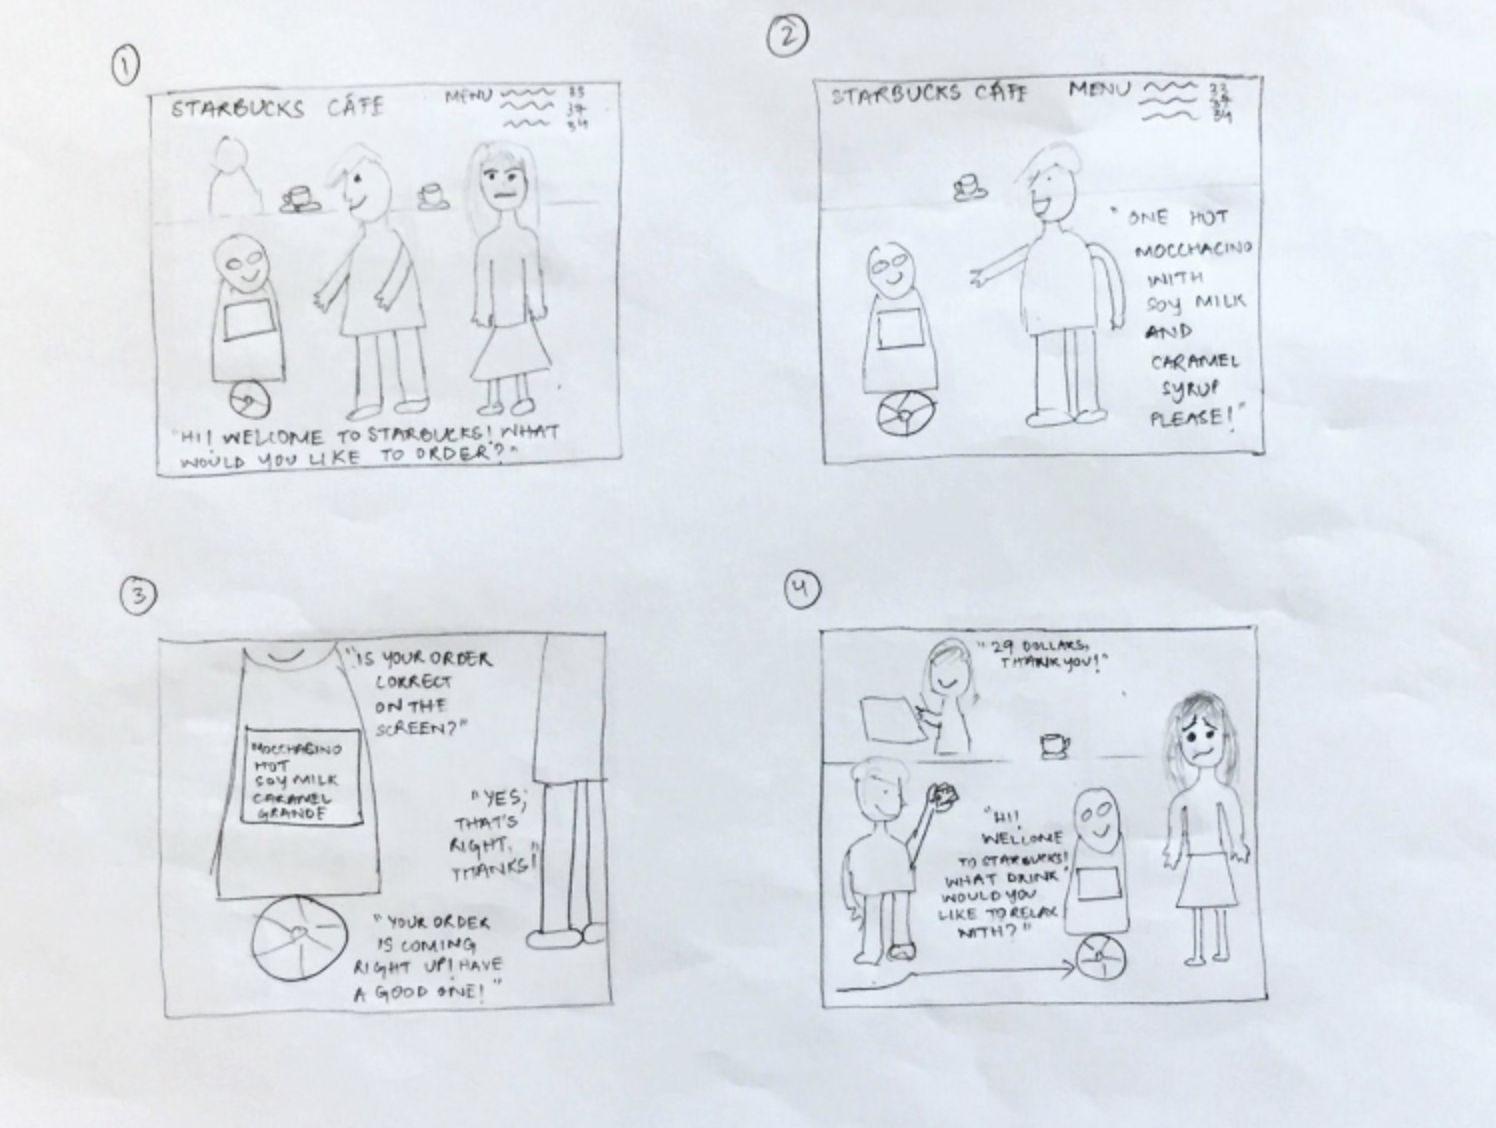 1
STARBUCKS CÁFE
MENU
33
37
34
"HI! WELCOME TO STARBUCKS! WHAT
WOULD YOU LIKE TO ORDER?"
2
STARBUCKS CÁFE
MENU
33
37
34
"ONE HOT
MOCCHACINO
WITH
SOY MILK
AND
CARAMEL
SYRUP
PLEASE!"
3
"IS YOUR ORDER
CORRECT
ON THE
SCREEN?"
MOCCHACINO
HOT
SOY MILK
CARAMEL
GRANDE
"YES,
THAT'S
RIGHT.
THANKS!"
"YOUR ORDER
IS COMING
RIGHT UP! HAVE
A GOOD ONE!"
4
"29 DOLLARS,
THANK YOU!"
"HI!
WELCOME
TO STARBUCKS!
WHAT DRINK
WOULD YOU
LIKE TO RELAX
WITH?"